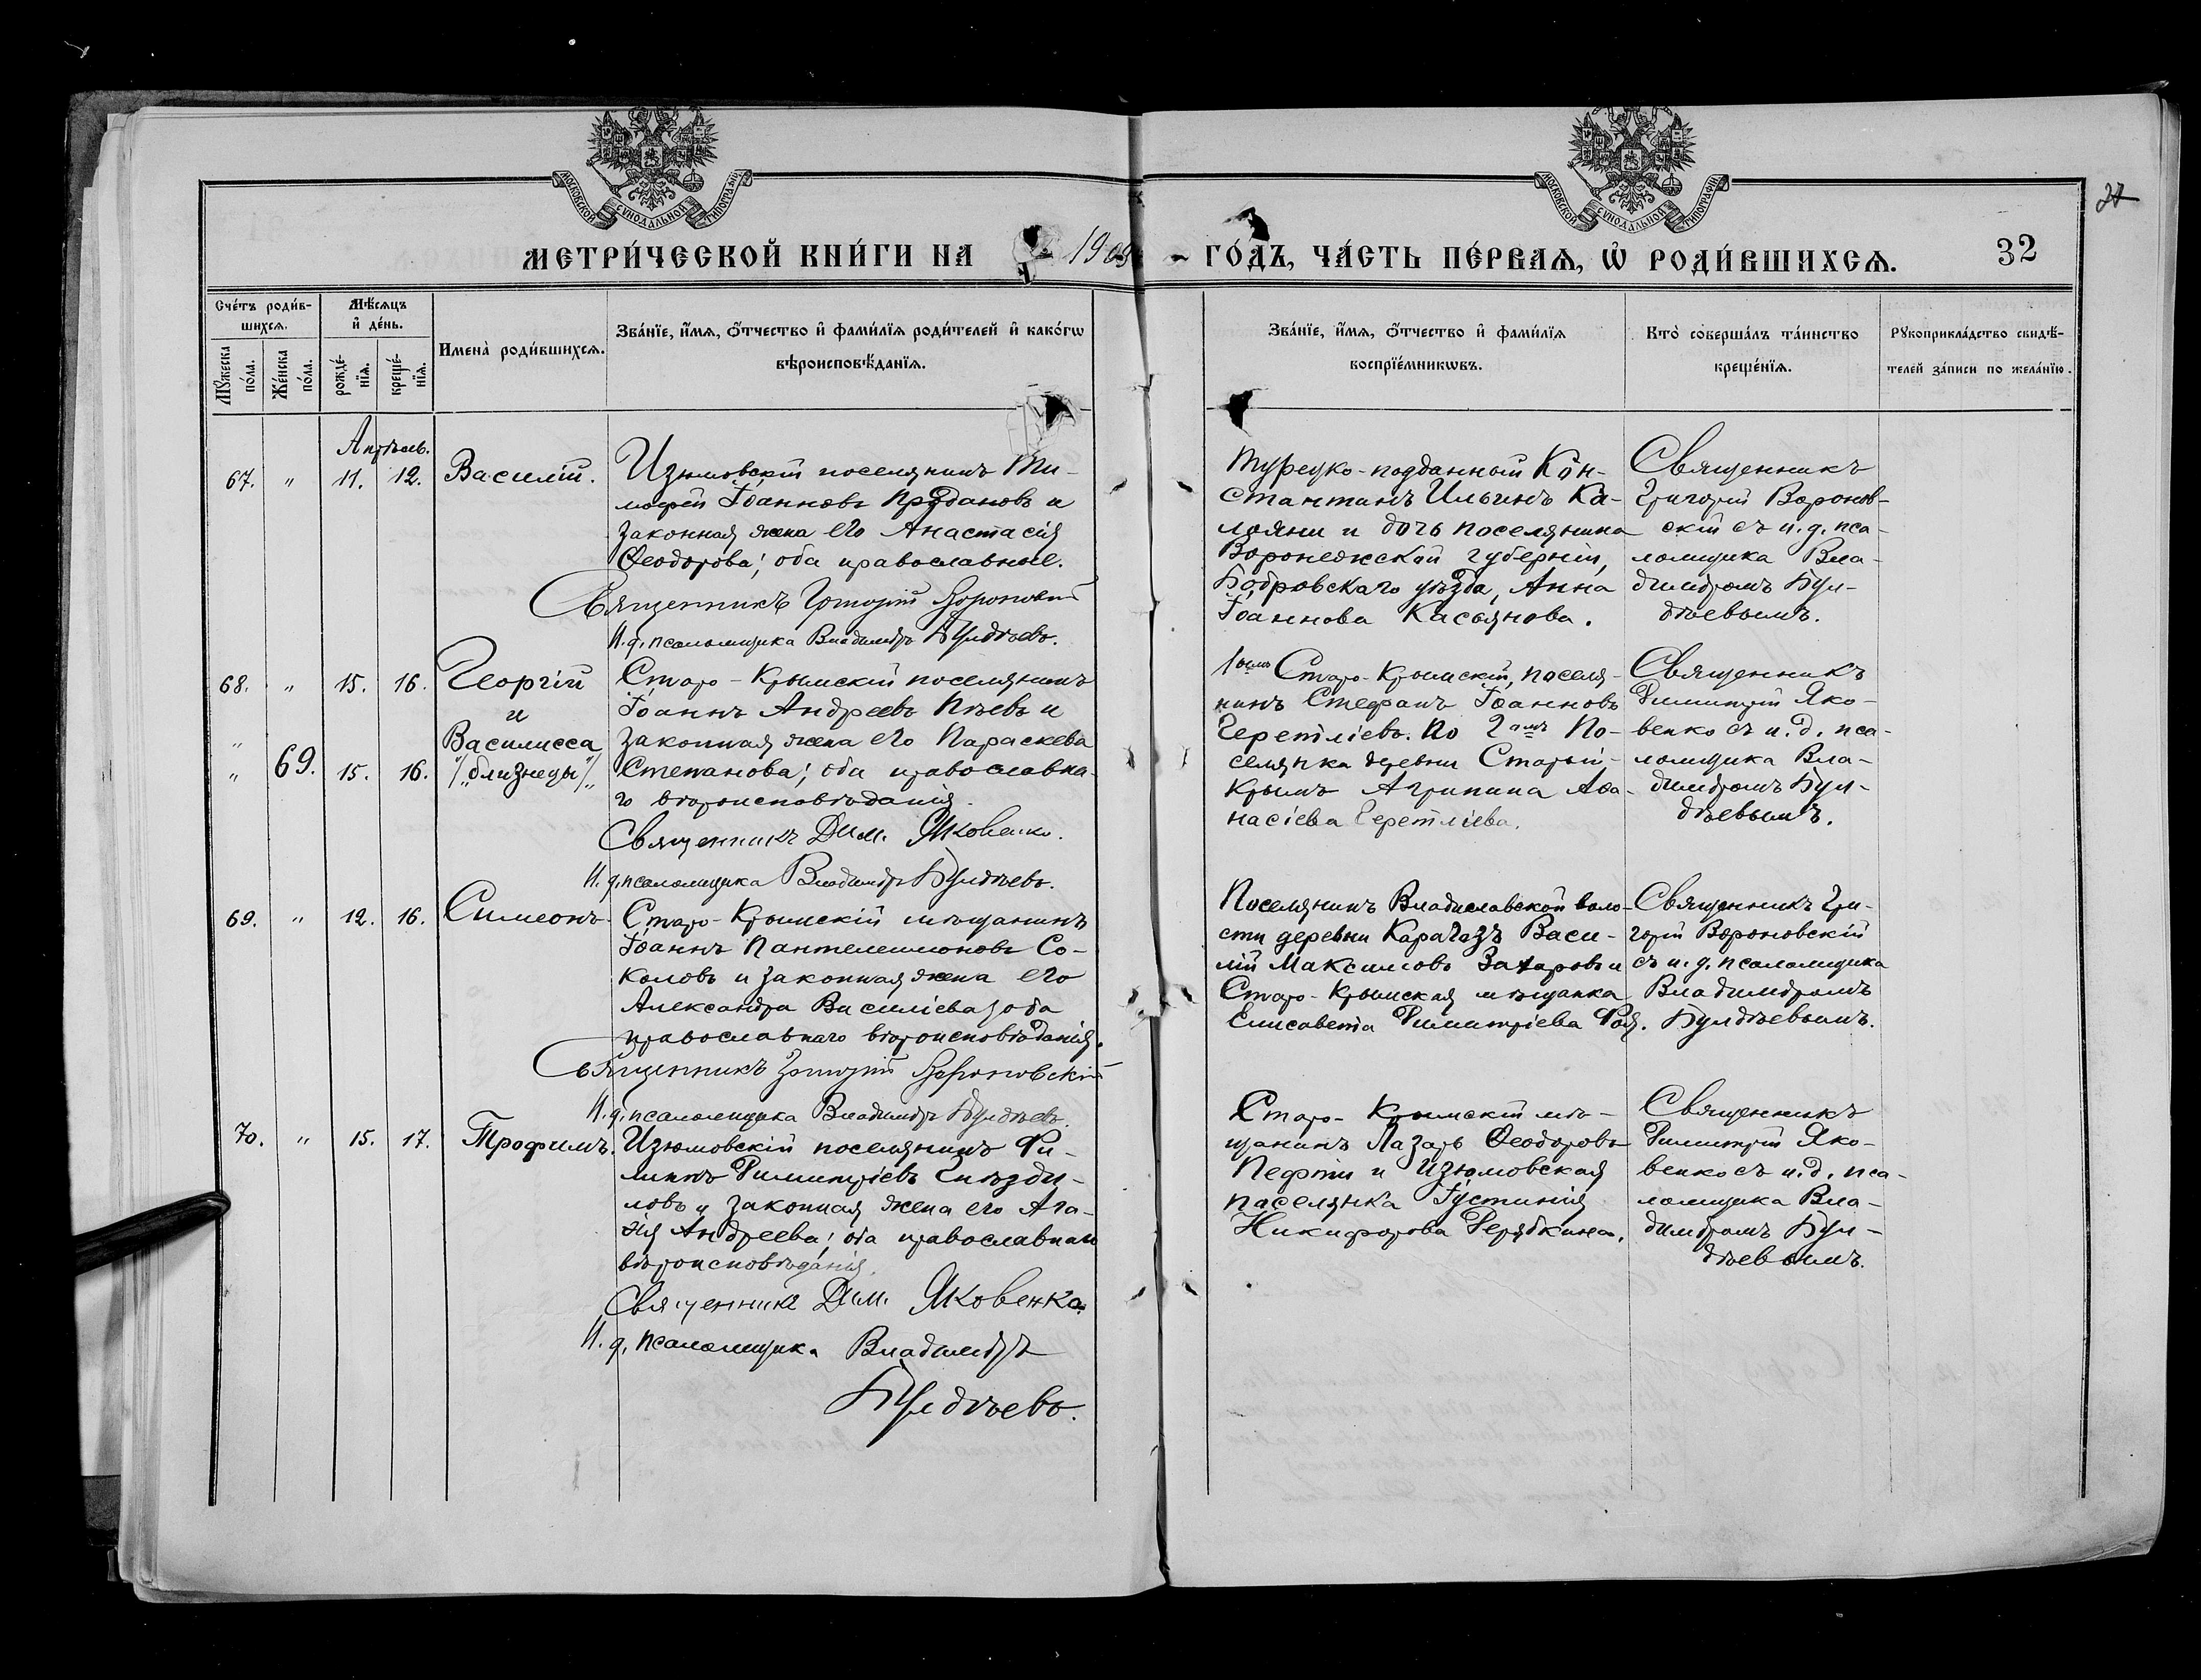 МОСКОВСКОЙ СѴНОДАЛЬНОЙ ТИПОГРАФІИ
МОСКОВСКОЙ СѴНОДАЛЬНОЙ ТИПОГРАФІИ
МЕТРИ́ЧЕСКОЙ КНИ́ГИ НА 1909 ГО́ДЪ, ЧА́СТЬ ПЕ́РВАѦ, Ѡ҆ РОДИ́ВШИХСѦ.
32
Сче́тъ роди́в-
шихсѧ.
Мꙋ́жеска по́ла.
Же́нска по́ла.
Мѣ́сѧцъ и҆ де́нь.
рожде́-
нїѧ.
креще́-
нїѧ.
Имена̀ роди́вшихсѧ.
Зва́нїе, и҆́мѧ, ѻ҆́тчество и҆ фами́лїѧ роди́телей и҆ како́гѡ
вѣроисповѣ́данїѧ.
Зва́нїе, и҆́мѧ, ѻ҆́тчество и҆ фами́лїѧ
воспрїе́мникѡвъ.
Кто̀ соверша́лъ та́инство
креще́нїѧ.
Рꙋкоприкла́дство свидѣ́-
телей за́писи по жела́нїю.
Апрѣль.
67. " 11. 12. Василій.
Изюмовскій поселянинъ Ти-
мофей Іоанновъ Продановъ и
законная жена его Анастасія
Ѳеодорова; оба православные.
Священникъ Григорій Вороновскій
И. д. псаломщика Владиміръ Булдѣевъ.
Турецко-подданный Кон-
стантинъ Ильинъ Ка-
лояни и дочь поселянина
Воронежской губерніи,
Бобровскаго уѣзда, Анна
Іоаннова Касьянова.
Священникъ
Григорій Воронов-
скій съ и. д. пса-
ломщика Вла-
диміромъ Бул-
дѣевымъ.
68. " 15. 16. Георгій
и
" Василисса
" 69. 15. 16. /"близнецы"/
Старо-Крымскій поселянинъ
Іоаннъ Андреевъ Пѣевъ и
законная жена его Параскева
Степанова; оба православна-
го вѣроисповѣданія.
Священникъ Дим. Яковенко.
И. д. псаломщика Владиміръ Булдѣевъ.
1ымъ Старо-Крымскій, поселя-
нинъ Стефанъ Іоанновъ
Черетліевъ. По 2амъ По-
селянка деревни Старый-
Крымъ Агрипина Аѳа-
насіева Черетліева.
Священникъ
Димитрій Яко-
венко съ и. д. пса-
ломщика Вла-
диміромъ Бул-
дѣевымъ.
69. " 12. 16. Симеонъ
Старо-Крымскій мѣщанинъ
Іоаннъ Пантелеимоновъ Со-
коловъ и законная жена его
Александра Василіева; оба
православнаго вѣроисповѣданія.
Священникъ Григорій Вороновскій
И. д. псаломщика Владиміръ Булдѣевъ.
Поселянинъ Владиславской воло-
сти деревни Карагазъ Васи-
лій Максимовъ Захаровъ и
Старо-Крымская мѣщанка
Елисавета Димитріева
Священникъ Гри-
горій Вороновскій
съ и. д. псаломщика
Владиміромъ
Булдѣевымъ.
70. " 15. 17. Трофимъ.
Изюмовскій поселянинъ Фи-
липпъ Димитріевъ Гнѣзди-
ловъ и законная жена его Ага-
ѳія Андреева; оба православнаго
вѣроисповѣданія.
Священникъ Дим. Яковенко.
И. д. псаломщика Владиміръ
Булдѣевъ.
Старо-Крымскій мѣ-
щанинъ Лазарь Ѳеодоровъ
Пефти и Изюмовская
поселянка Іустинія
Никифорова Дерябкина.
Священникъ
Димитрій Яко-
венко съ и. д. пса-
ломщика Вла-
диміромъ Бул-
дѣевымъ.